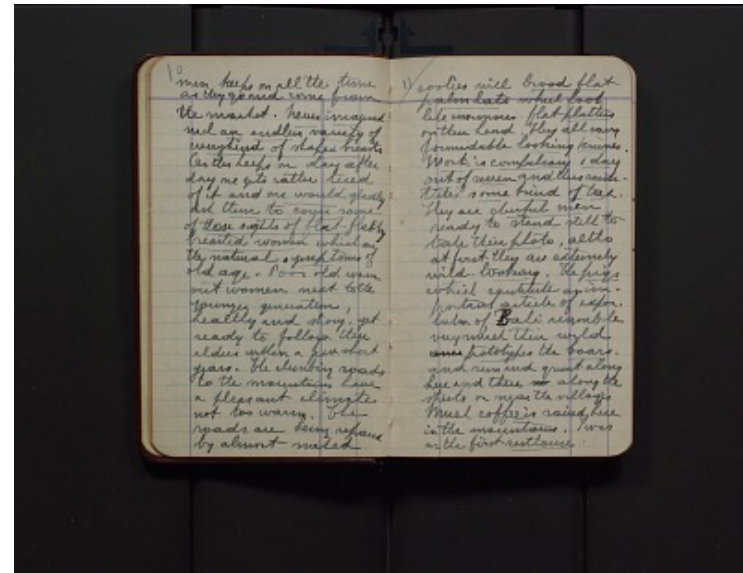 10
men keeps on all the time
as they go and come from
the market. Never imagined
such an endless variety of
of shapes breasts
keeps on day after
day one gets rather tired
of it and one would gladly
ask them to cover some
of those sights of flat flabby
breasted women which are
the natural symptoms of
old age. Poor old worn
out women next to the
younger generation,
healthy and strong, yet
ready to follow their
elders within a few short
years. The climbing roads
to the mountains have
a pleasant climate
not too warm. The
roads are being repaired
by almost naked
11
coolies with broad flat
palm hats which look
like enormous flat platters
on their head. They all carry
formidable looking knives.
Work is compulsory 1 day
out of seven and this
some kind of tax.
They are cheerful men
ready to stand still to
take their photo, altho
at first they are extremely
wild-looking. The pigs
which constitute an im-
portant article of expor-
tation of Bali resemble
very much their wild
prototypes the boars.
and run and grunt along
here and there along the
streets or near the villages
Much coffee is raised here
in the mountains. I was
in the first resthouse